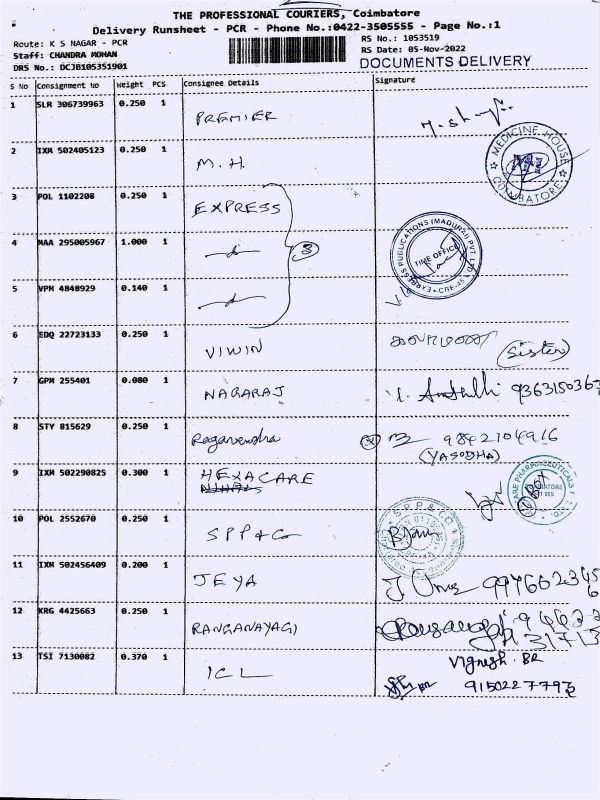 THE PROFESSIONAL COURIERS, Coimbatore
Delivery Runsheet - PCR - Phone No.:0422-3505555 - Page No.:1
Route: K S NAGAR - PCR
RS No.: 1053519
Staff: CHANDRA MOHAN
RS Date: 05-Nov-2022
DRS No.: DCJB105351901
DOCUMENTS DELIVERY
S No Consignment No Weight PCS Consignee Details Signature
1 SLR 306739963 0.250 1 PREMIER
2 IXM 502405123 0.250 1 M.H.
MEDICINE HOUSE COIMBATORE
3 POL 1102208 0.250 1 EXPRESS
4 MAA 295005967 1.000 1 3
EXPRESS PUBLICATIONS (MADURAI) PVT. LTD. CBE-45
TIME OFFICE
5 VPM 4848929 0.140 1
6 EDQ 22723133 0.250 1 VIWIN (Sister)
7 GPM 255401 0.080 1 NAGARAJ
8 STY 815629 0.250 1 Ragavendra 9842104916
(YASODHA)
9 IXM 502290825 0.300 1 HEXACARE
10 POL 2552670 0.250 1 SPP & Co
S.P.P & CO
11 IXM 502456409 0.200 1 JEYA
12 KRG 4425663 0.250 1 RANGANAYAGI
13 TSI 7130082 0.370 1 ICL Vignesh. BR
9150227793